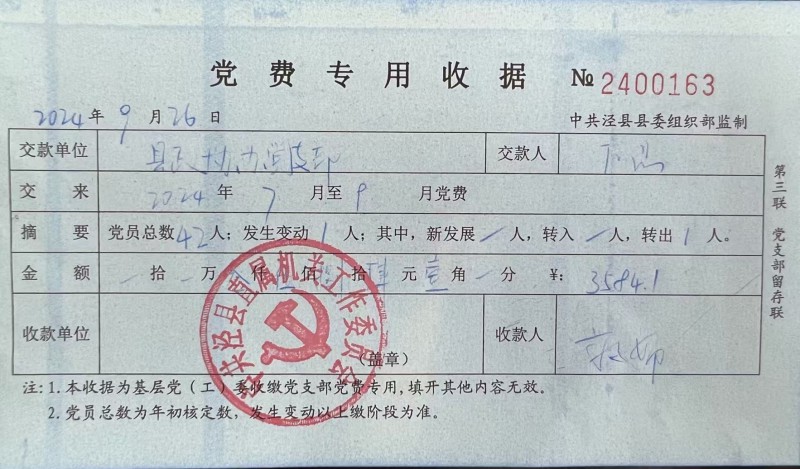 党费专用收据 № 2400163
2024年9月26日 中共泾县县委组织部监制
交款单位 交款人
交来 2024年7月至9月党费
摘要 党员总数42人；发生变动1人；其中，新发展/人，转入/人，转出1人。
金额 拾万仟佰拾肆元壹角分 ¥：3584.1
收款单位 （盖章） 收款人
中共泾县直属机关工作委员会
注：1.本收据为基层党（工）委收缴党支部党费专用，填开其他内容无效。
2.党员总数为年初核定数，发生变动以上缴阶段为准。
第三联 党支部留存联